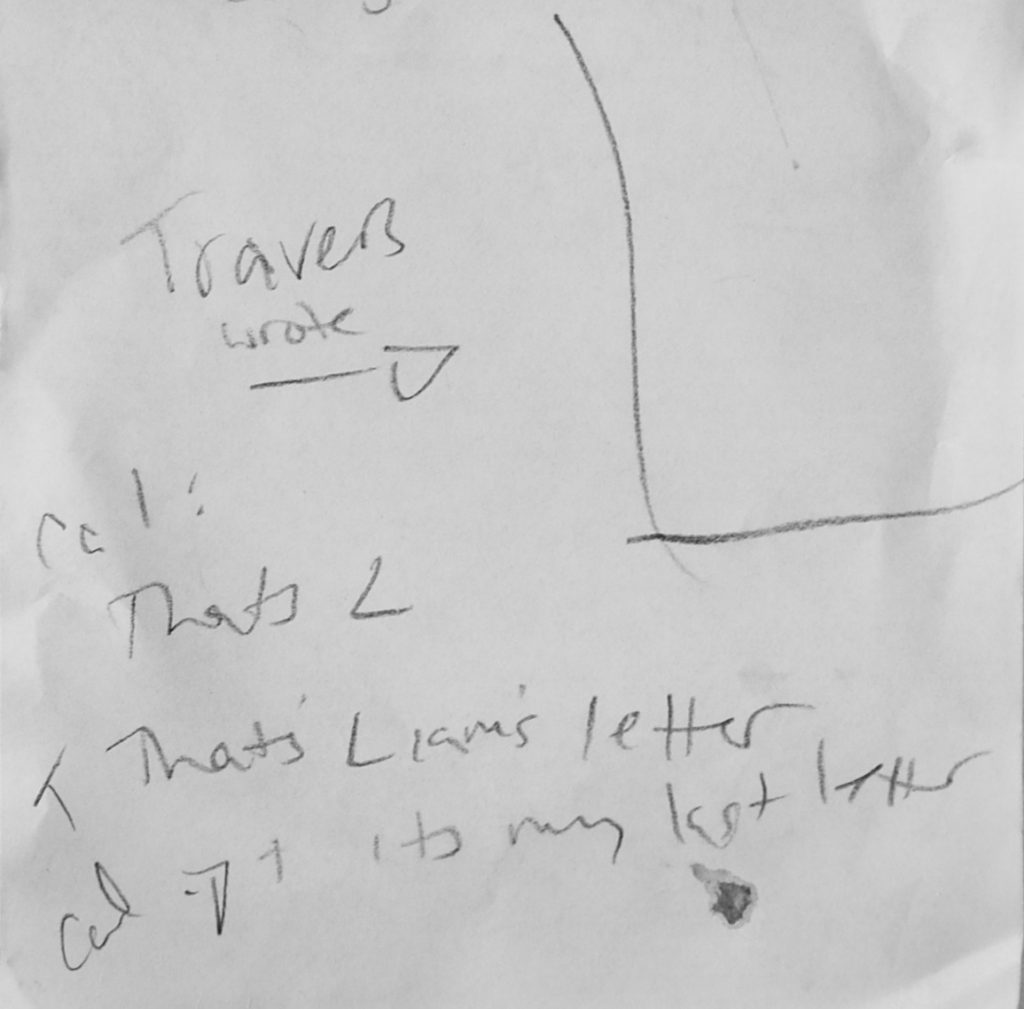 Travers
wrote
cal:
Thats L
T That's Liam's letter
cal its my last letter